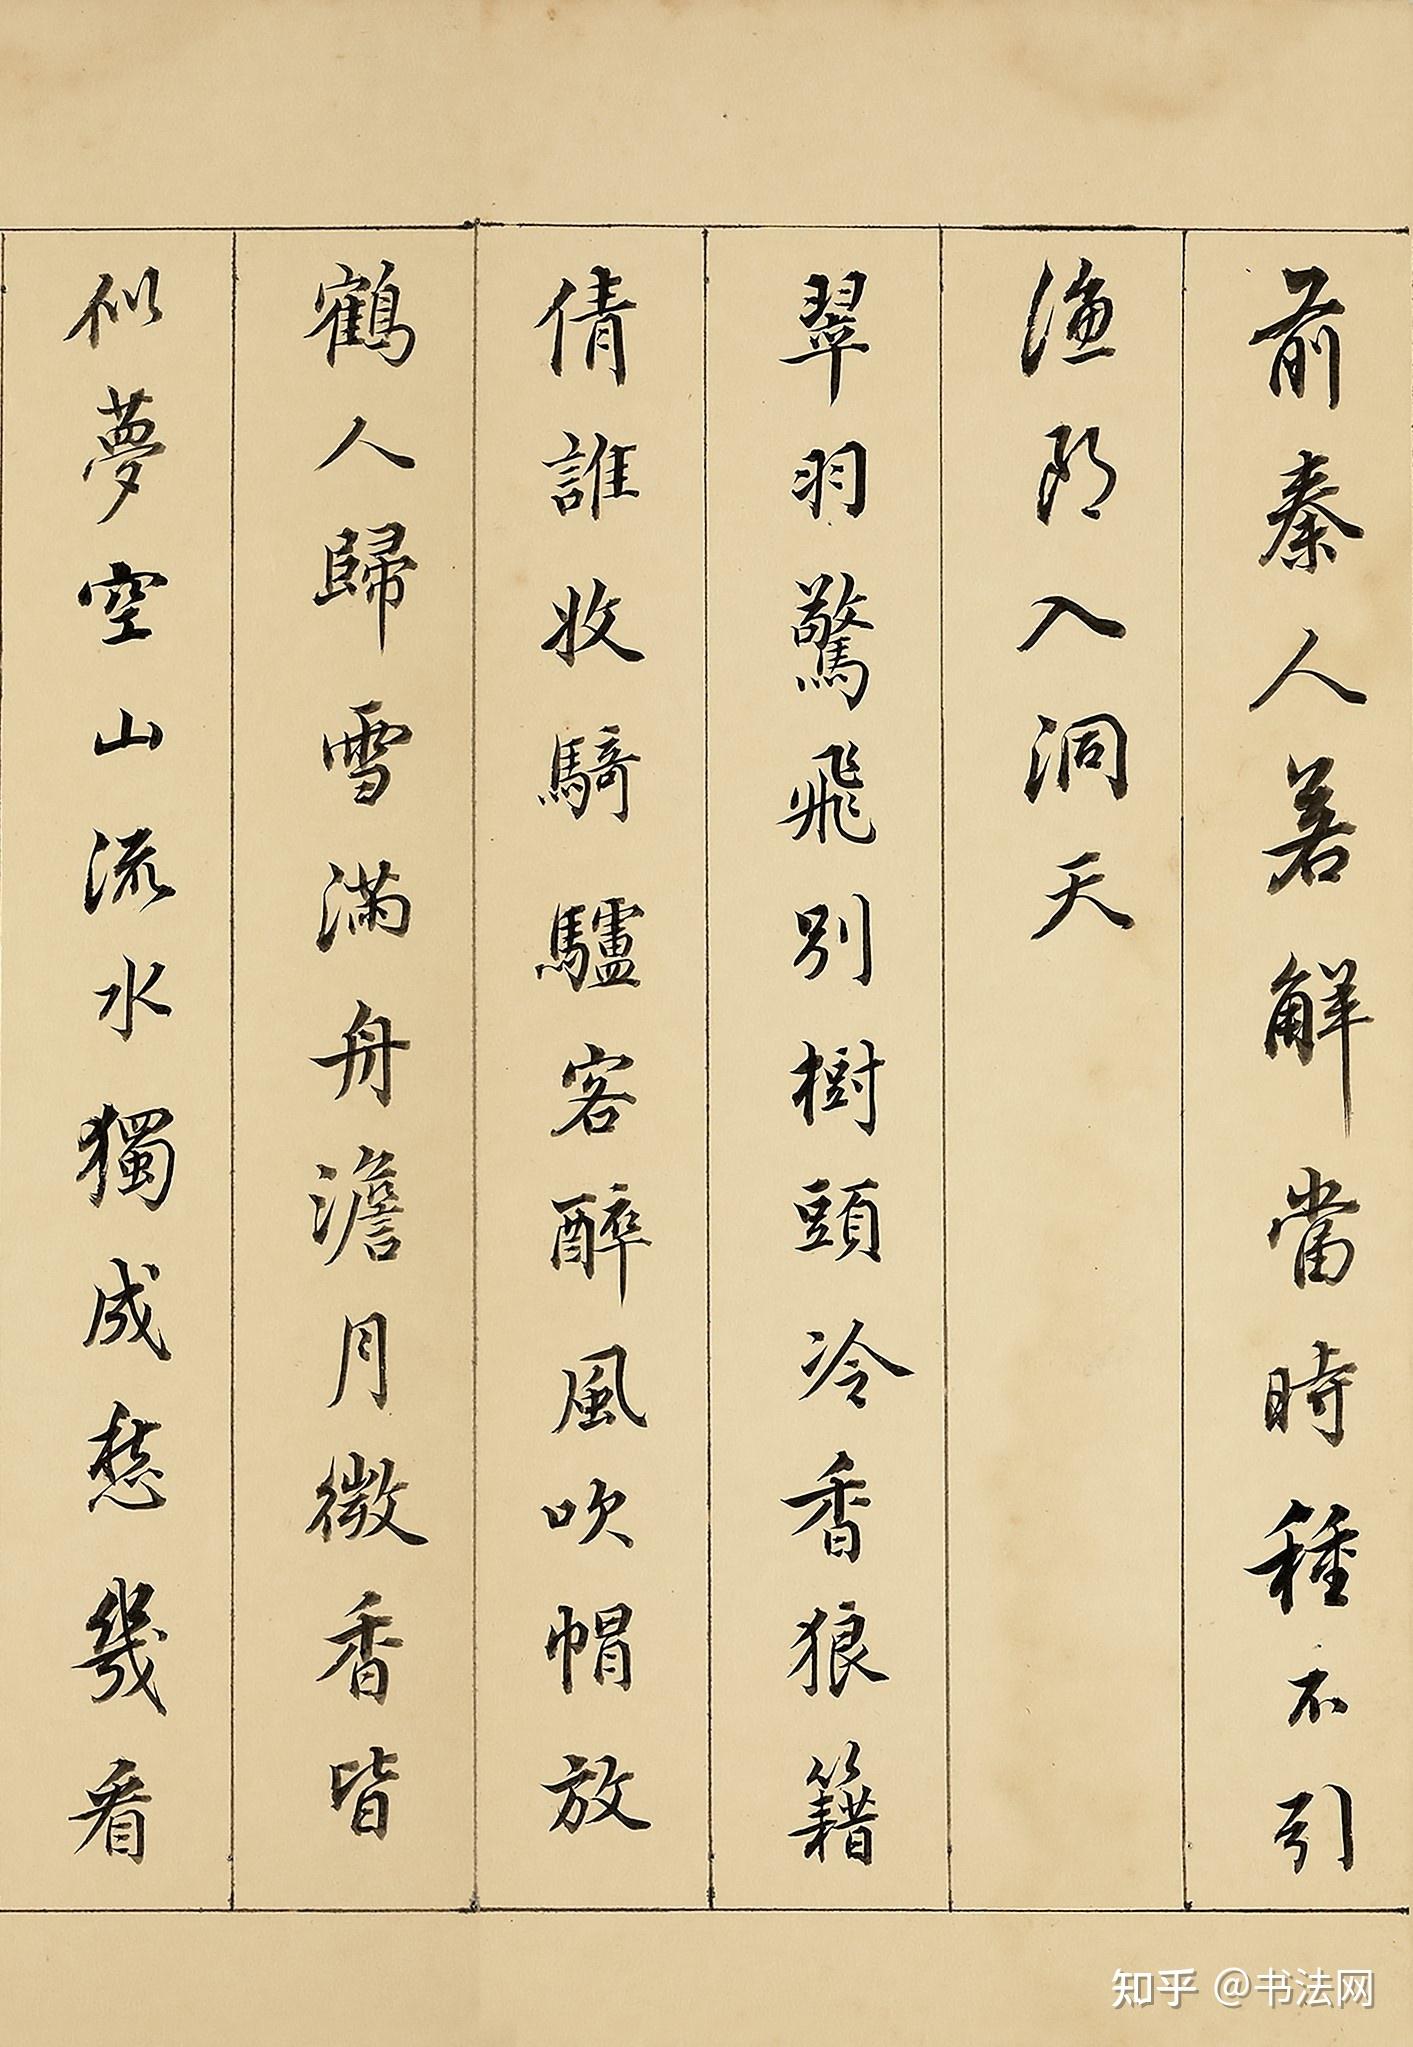 前秦人若解當時種不引
漁郎入洞天
翠羽驚飛別樹頭冷香狼籍
倩誰收騎驢客醉風吹帽放
鶴人歸雪滿舟澹月微香皆
似夢空山流水獨成愁幾看
知乎 @书法网